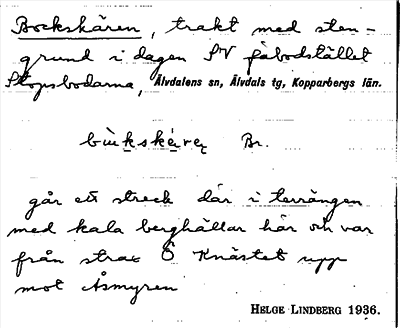 Bockskåren, trakt med sten-
grund i dagen SV fäbodstället
Stopsbodarna, Älvdalens sn, Älvdals tg, Kopparbergs län.
Br.
går ett streck där i terrängen
med kala berghällar här och var
från strax Ö Knästet upp
mot Åsmyren
HELGE LINDBERG 1936.